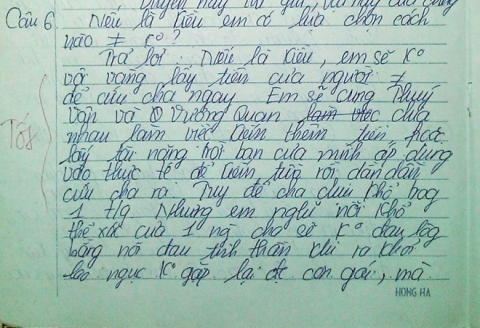 Câu 6 Nếu là Kiều em có lựa chọn cách
nào ≠ ko?
Trả lời: Nếu là Kiều, em sẽ ko
vội vàng lấy tiền của người ≠
để cứu cha ngay. Em sẽ cùng Thuý
Vân và Vương Quan làm việc của
nhau làm việc kiếm thêm tiền,
lấy tài năng trời ban của mình áp dụng
vào thực tế để kiếm tiền rồi dần dần
cứu cha ra. Tuy để cha chịu khổ
1 t/g. Nhưng em nghĩ nỗi khổ
thể xác của 1 ng cha sẽ ko đau lòg
bằng nỗi đau tinh thần khi ra khỏi
lao ngục ko gặp lại đc con gái, mà
Tốt
HONG HA